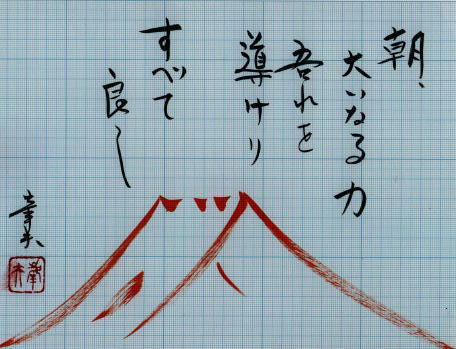 朝、
大いなる力
吾れを
導けり
すべて
良し